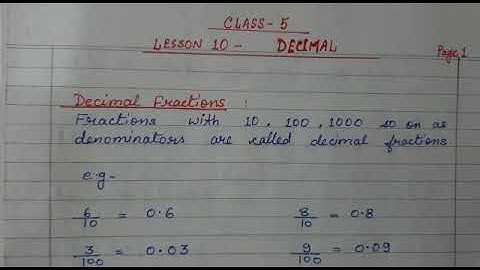 CLASS- 5
LESSON 10 - DECIMAL
Page 1
Decimal Fractions :
Fractions with 10, 100, 1000 so on as
denominators are called decimal fractions
e.g-
6/10 = 0.6 8/10 = 0.8
3/100 = 0.03 9/100 = 0.09